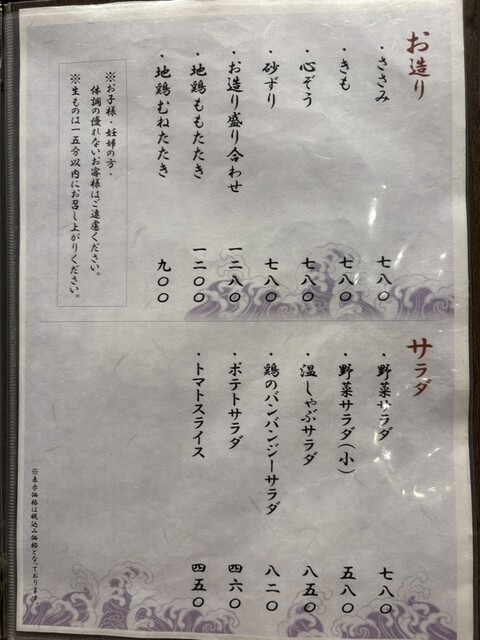 お造り
・ささみ 七八〇
・きも 七八〇
・心ぞう 七八〇
・砂ずり 七八〇
・お造り盛り合わせ 一二八〇
・地鶏ももたたき 一二〇〇
・地鶏むねたたき 九〇〇
※お子様・妊婦の方・
体調の優れないお客様はご遠慮ください。
※生ものは一五分以内にお召し上がりください。
サラダ
・野菜サラダ 七八〇
・野菜サラダ(小) 五八〇
・温しゃぶサラダ 八五〇
・鶏のバンバンジーサラダ 八二〇
・ポテトサラダ 四六〇
・トマトスライス 四五〇
※表示価格は税込み価格となっております